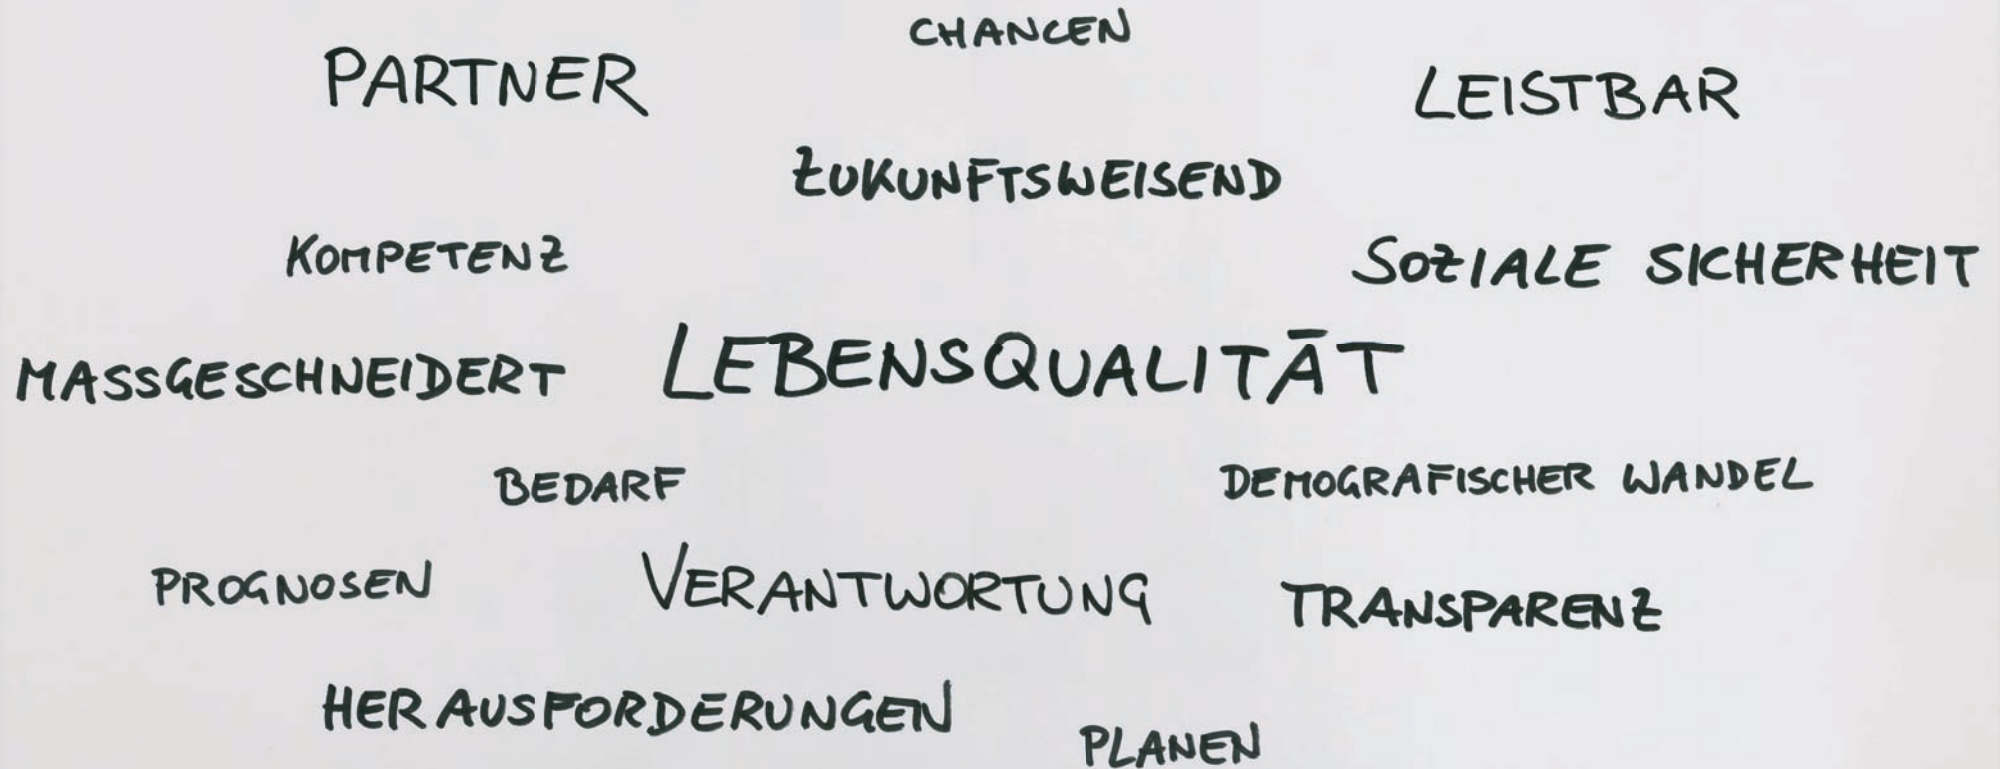 CHANCEN
PARTNER
LEISTBAR
ZUKUNFTSWEISEND
KOMPETENZ
SOZIALE SICHERHEIT
MASSGESCHNEIDERT
LEBENSQUALITÄT
BEDARF
DEMOGRAFISCHER WANDEL
PROGNOSEN
VERANTWORTUNG
TRANSPARENZ
HERAUSFORDERUNGEN
PLANEN